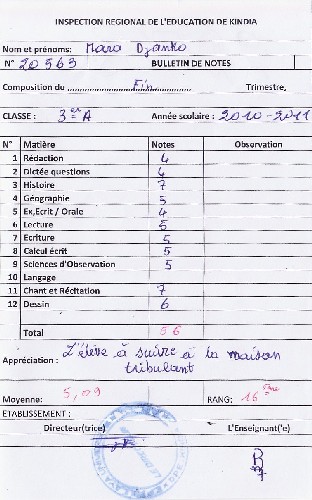 INSPECTION REGIONAL DE L'EDUCATION DE KINDIA
Nom et prénoms: Mara Djanko
N° 20563 BULLETIN DE NOTES
Composition du Fin Trimestre,
CLASSE : 3er A Année scolaire : 2010-2011
N° Matière Notes Observation
1 Rédaction 4
2 Dictée questions 4
3 Histoire 7
4 Géographie 5
5 Ex,Ecrit / Orale 4
6 Lecture 5
7 Ecriture 5
8 Calcul écrit 5
9 Sciences d'Observation 5
10 Langage
11 Chant et Récitation 7
12 Dessin 6
Total 56
Appréciation : L'élève à suivre à la maison
tribulant
Moyenne: 5,09 RANG: 16ème
ETABLISSEMENT :
Directeur(trice) L'Enseignant('e)